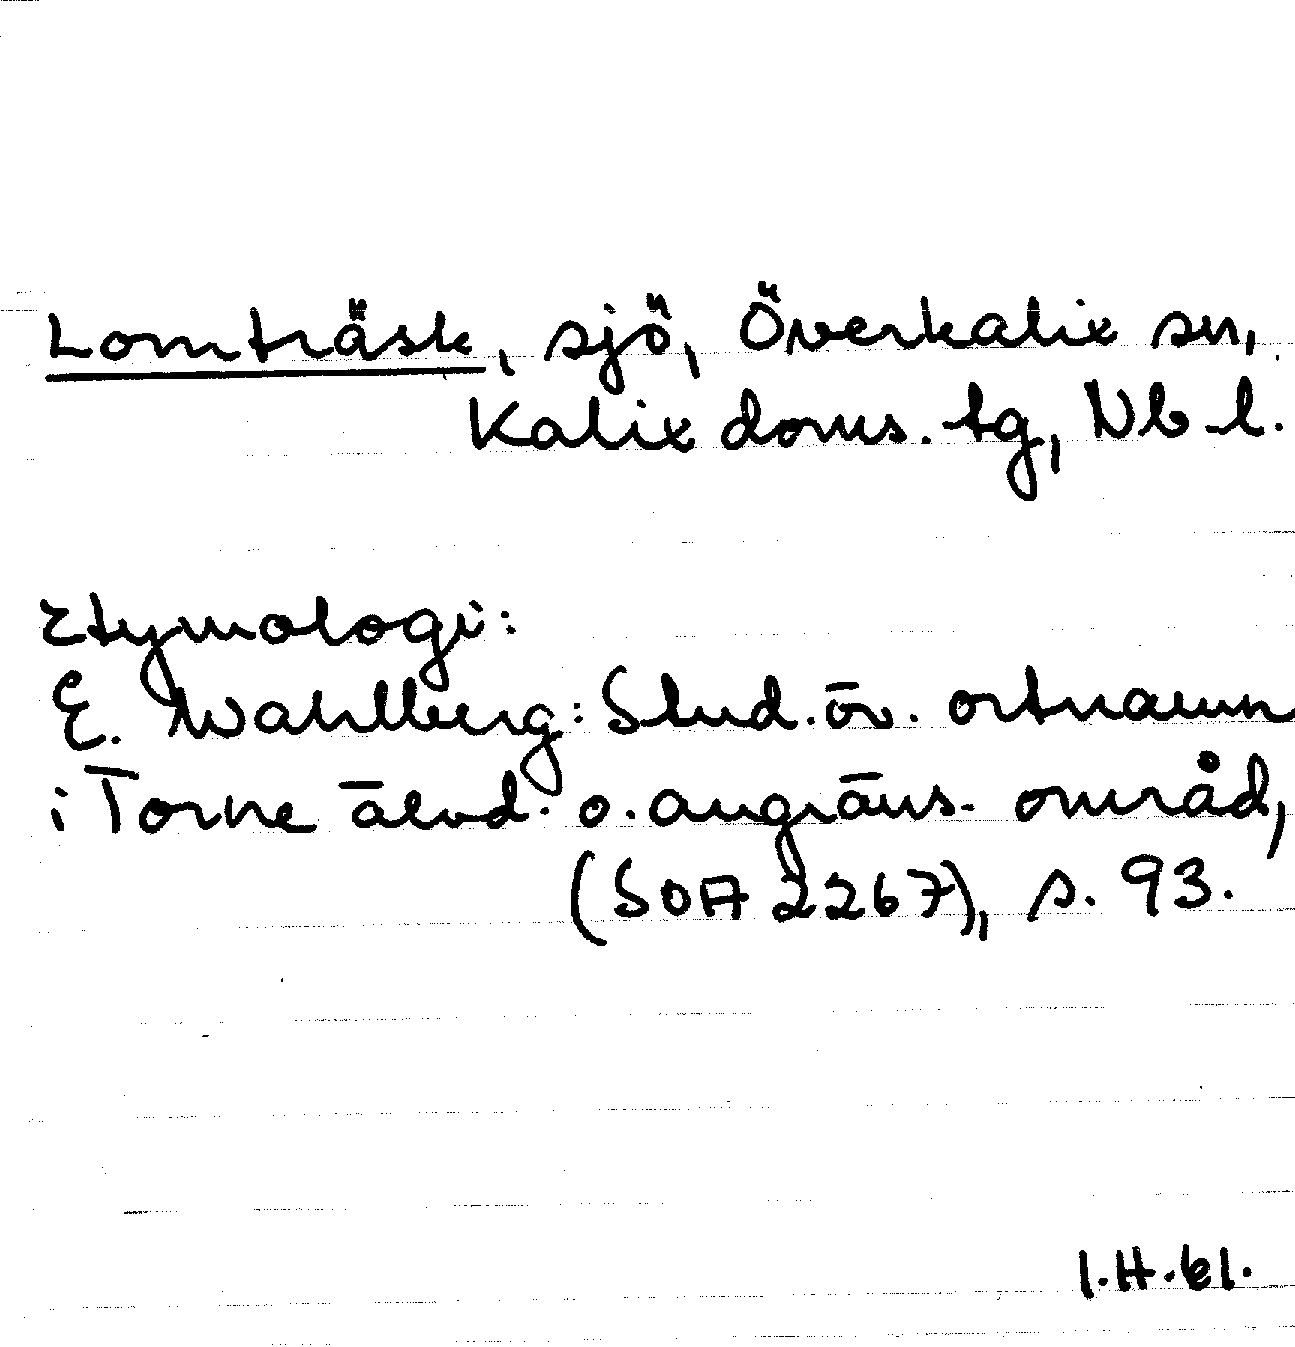 Lomträsk, sjö, Överkalix sn,
Kalix doms. tg, Nb. l.
Etymologi:
E. Wahlberg: Stud. öv. ortnamn
i Torne älvd. o. angräns. område,
(SOA 2267), s. 93.
I.H.61.